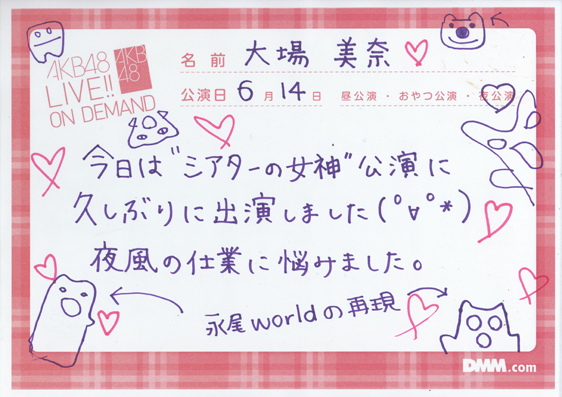 AKB48
LIVE!!
ON DEMAND
AKB
48
名前 大場 美奈
公演日 6月14日 昼公演・おやつ公演・夜公演
今日は"シアターの女神"公演に
久しぶりに出演しました(°∀°*)
夜風の仕業に悩みました。
永尾worldの再現
DMM.com